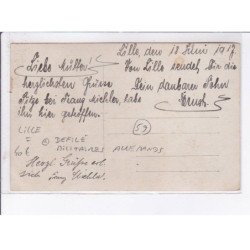 Lille, den 18 Juni 1917.
Liebe Mutter!
Von Lille sendet Dir die
herzlichsten Grüsse
Dein dankbarer Sohn
Franz Michler, habe
ihn hier getroffen.
LILLE
59
DEFILÉ
MILITAIRES ALLEMANDS
Herzl. Grüsse